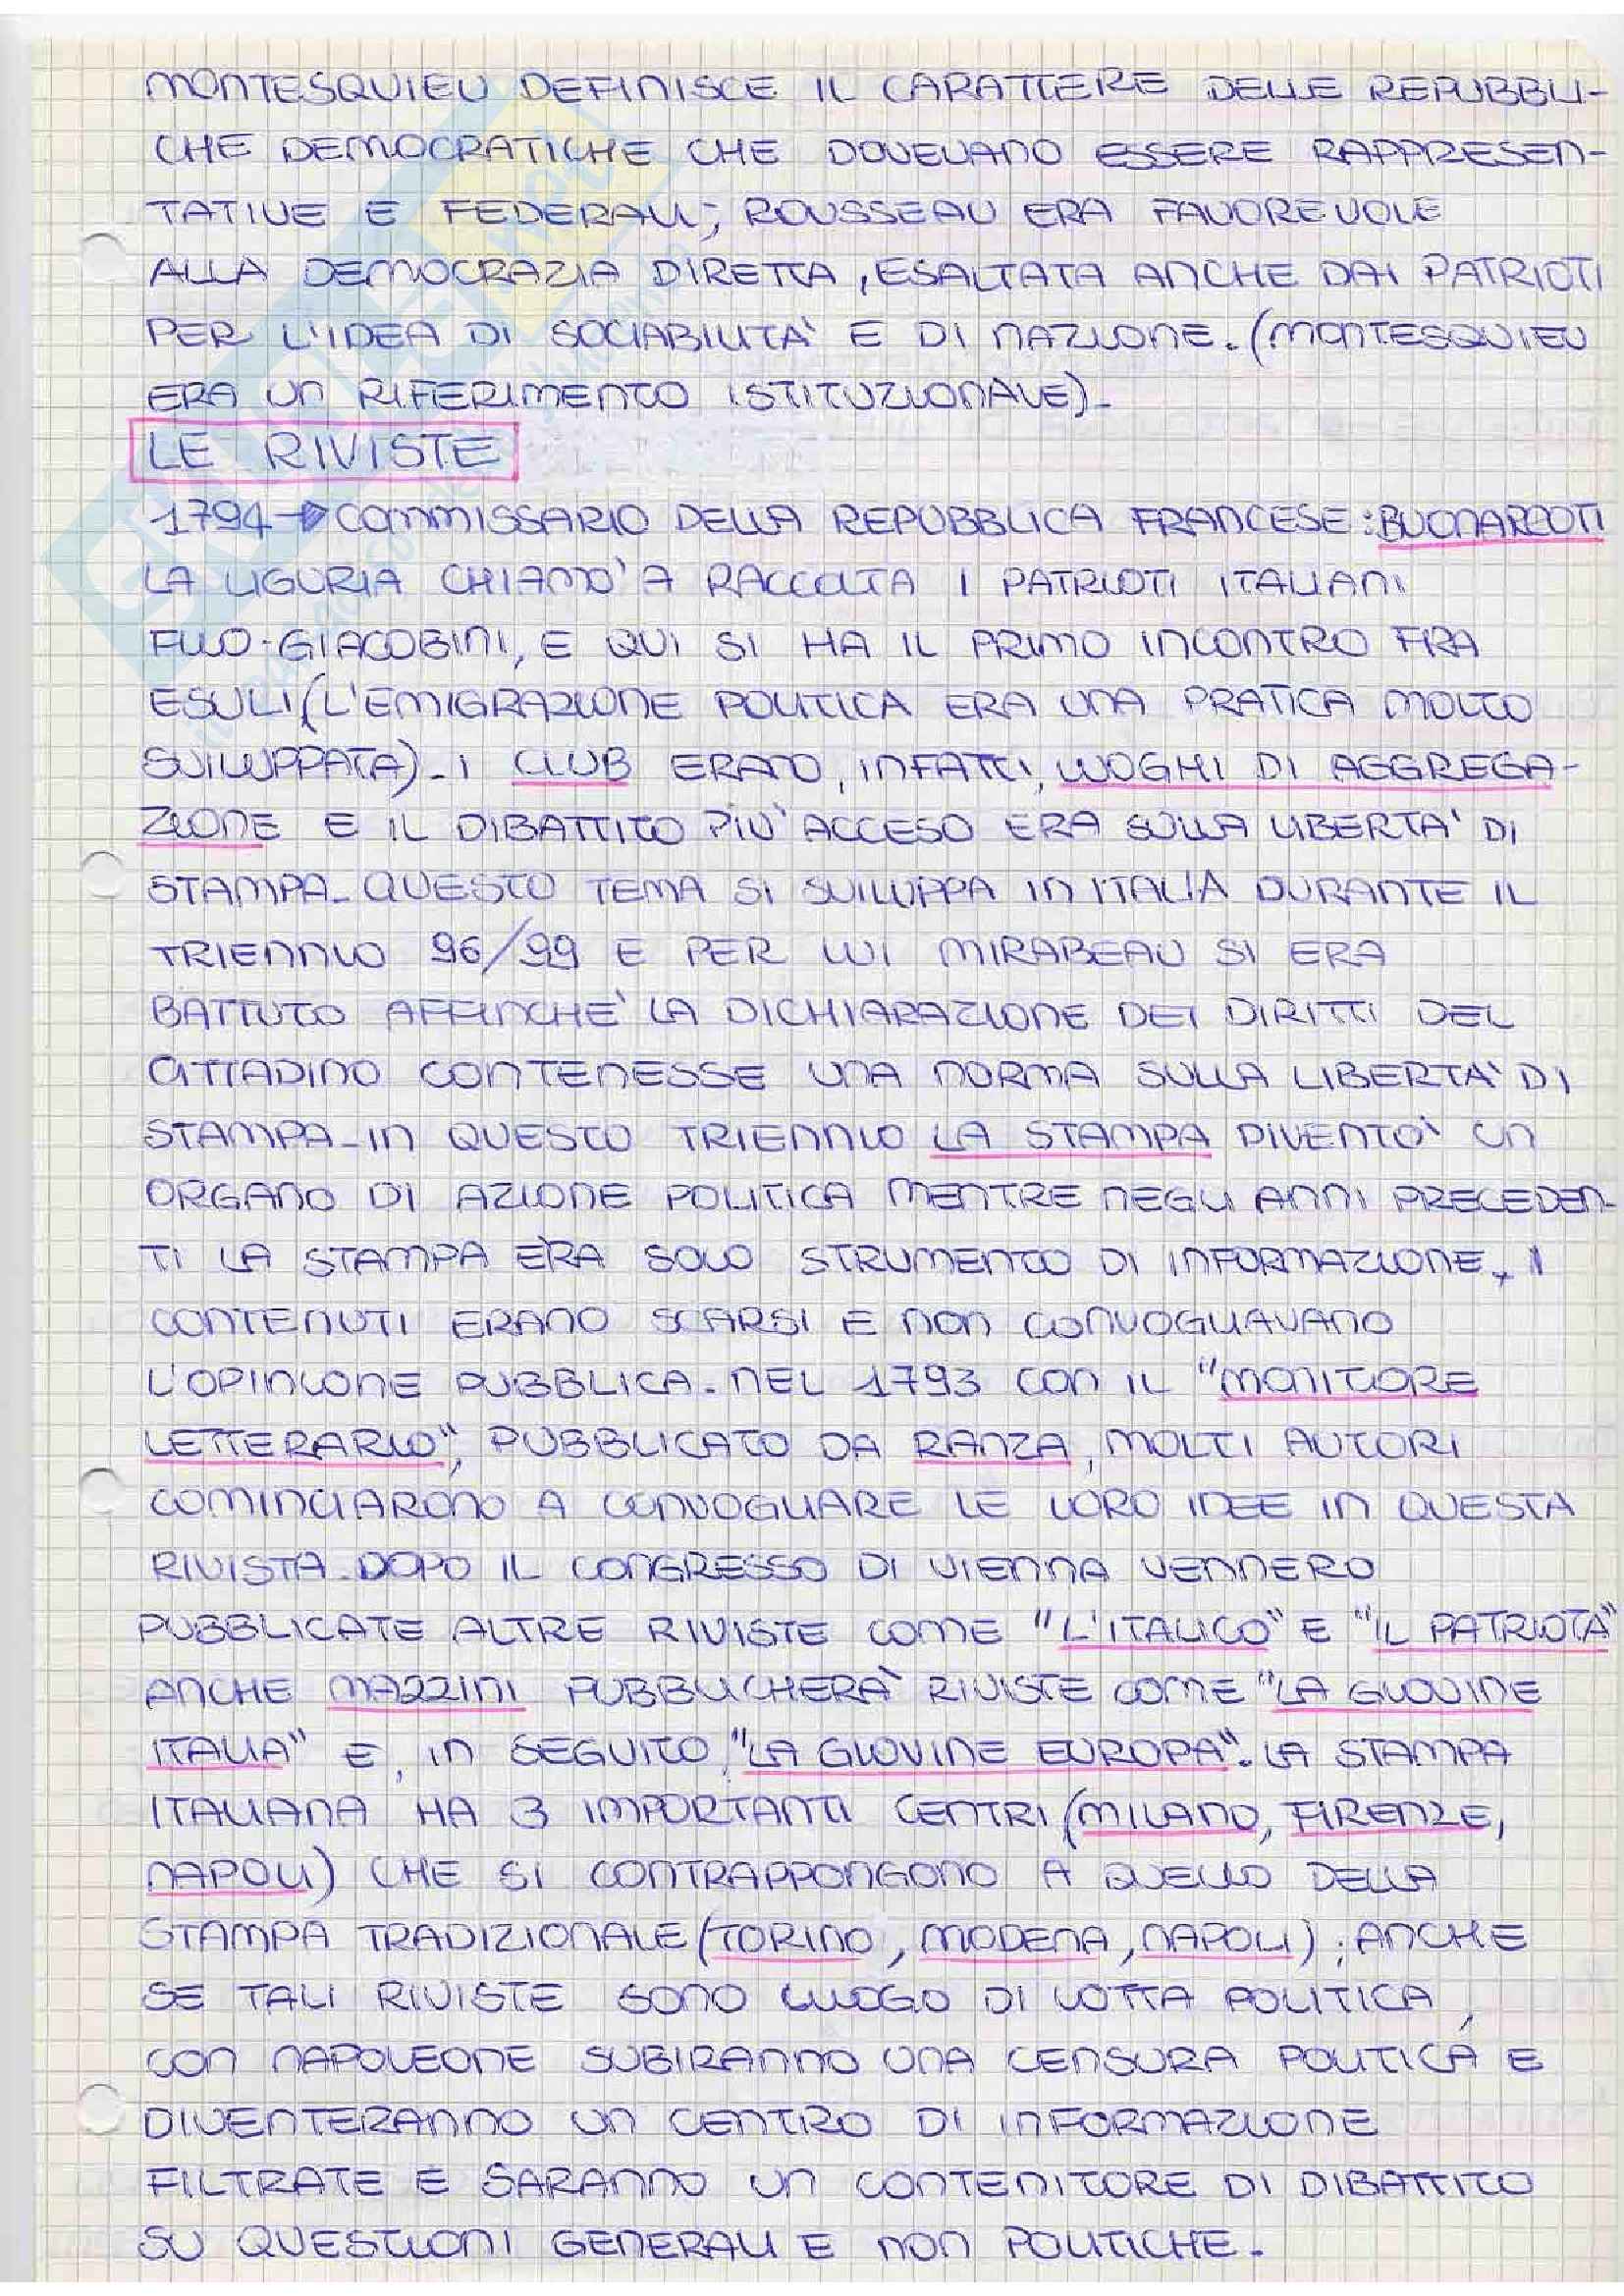 MONTESQUIEU DEFINISCE IL CARATTERE DELLE REPUBBLI-
CHE DEMOCRATICHE CHE DOVEVANO ESSERE RAPPRESEN-
TATIVE E FEDERALI; ROUSSEAU ERA FAVOREVOLE
ALLA DEMOCRAZIA DIRETTA, ESALTATA ANCHE DAI PATRIOTI
PER L'IDEA DI SOCIABILITA' E DI NAZIONE. (MONTESQUIEU
ERA UN RIFERIMENTO ISTITUZIONALE).
LE RIVISTE
1794 → COMMISSARIO DELLA REPUBBLICA FRANCESE: BUONARROTI
LA LIGURIA CHIAMO' A RACCOLTA I PATRIOTI ITALIANI
FILO-GIACOBINI, E QUI SI HA IL PRIMO INCONTRO FRA
ESULI (L'EMIGRAZIONE POLITICA ERA UNA PRATICA MOLTO
SVILUPPATA). I CLUB ERANO, INFATTI, LUOGHI DI AGGREGA-
ZIONE E IL DIBATTITO PIU' ACCESO ERA SULLA LIBERTA' DI
STAMPA. QUESTO TEMA SI SVILUPPA IN ITALIA DURANTE IL
TRIENNIO 96/99 E PER LUI MIRABEAU SI ERA
BATTUTO AFFINCHE' LA DICHIARAZIONE DEI DIRITTI DEL
CITTADINO CONTENESSE UNA NORMA SULLA LIBERTA' DI
STAMPA. IN QUESTO TRIENNIO LA STAMPA DIVENTO' UN
ORGANO DI AZIONE POLITICA MENTRE NEGLI ANNI PRECEDEN-
TI LA STAMPA ERA SOLO STRUMENTO DI INFORMAZIONE, I
CONTENUTI ERANO SCARSI E NON CONVOGLIAVANO
L'OPINIONE PUBBLICA. NEL 1793 CON IL "MONITORE
LETTERARIO", PUBBLICATO DA RANZA, MOLTI AUTORI
COMINCIARONO A CONVOGLIARE LE LORO IDEE IN QUESTA
RIVISTA. DOPO IL CONGRESSO DI VIENNA VENNERO
PUBBLICATE ALTRE RIVISTE COME "L'ITALICO" E "IL PATRIOTA"
ANCHE MAZZINI PUBBLICHERA' RIVISTE COME "LA GIOVINE
ITALIA" E, IN SEGUITO, "LA GIOVINE EUROPA". LA STAMPA
ITALIANA HA 3 IMPORTANTI CENTRI (MILANO, FIRENZE,
NAPOLI) CHE SI CONTRAPPONGONO A QUELLO DELLA
STAMPA TRADIZIONALE (TORINO, MODENA, NAPOLI); ANCHE
SE TALI RIVISTE SONO LUOGO DI LOTTA POLITICA,
CON NAPOLEONE SUBIRANNO UNA CENSURA POLITICA E
DIVENTERANNO UN CENTRO DI INFORMAZIONE
FILTRATE E SARANNO UN CONTENITORE DI DIBATTITO
SU QUESTIONI GENERALI E NON POLITICHE.